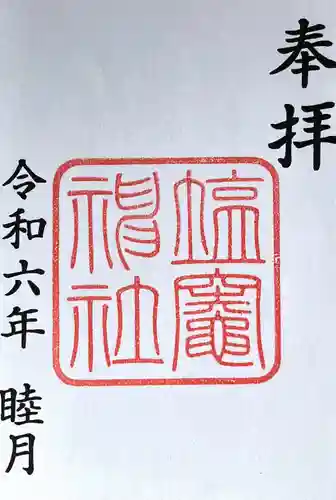 奉拝
塩竈
神社
令和六年 睦月